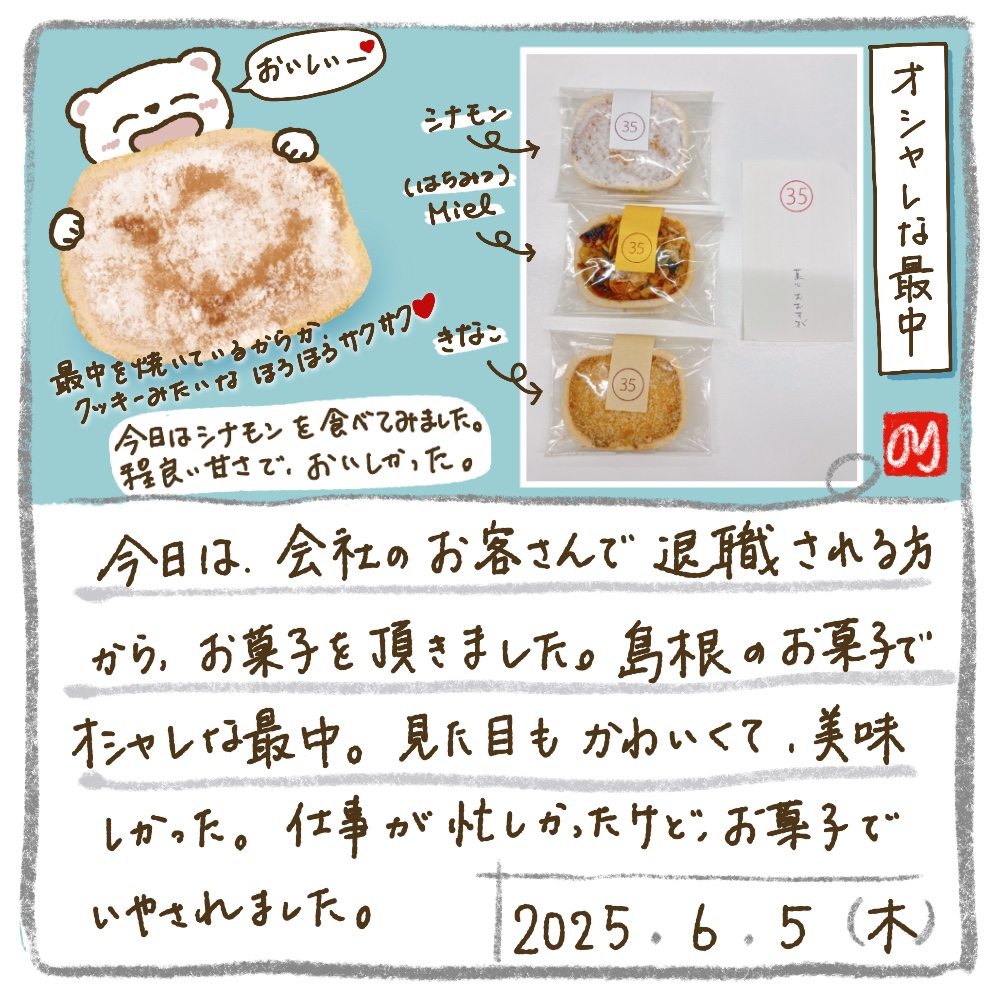 オシャレな最中
おいしいー
シナモン
(はちみつ)
Miel
きなこ
35
35
35
35
菓じ おおすが
最中を焼いているからか、
クッキーみたいな ほろほろサクサク
今日はシナモンを食べてみました。
程良い甘さで、おいしかった。
今日は、会社のお客さんで退職される方
から、お菓子を頂きました。島根のお菓子で
オシャレな最中。見た目もかわいくて、美味
しかった。仕事が忙しかったけど、お菓子で
いやされました。
2025.6.5(木)